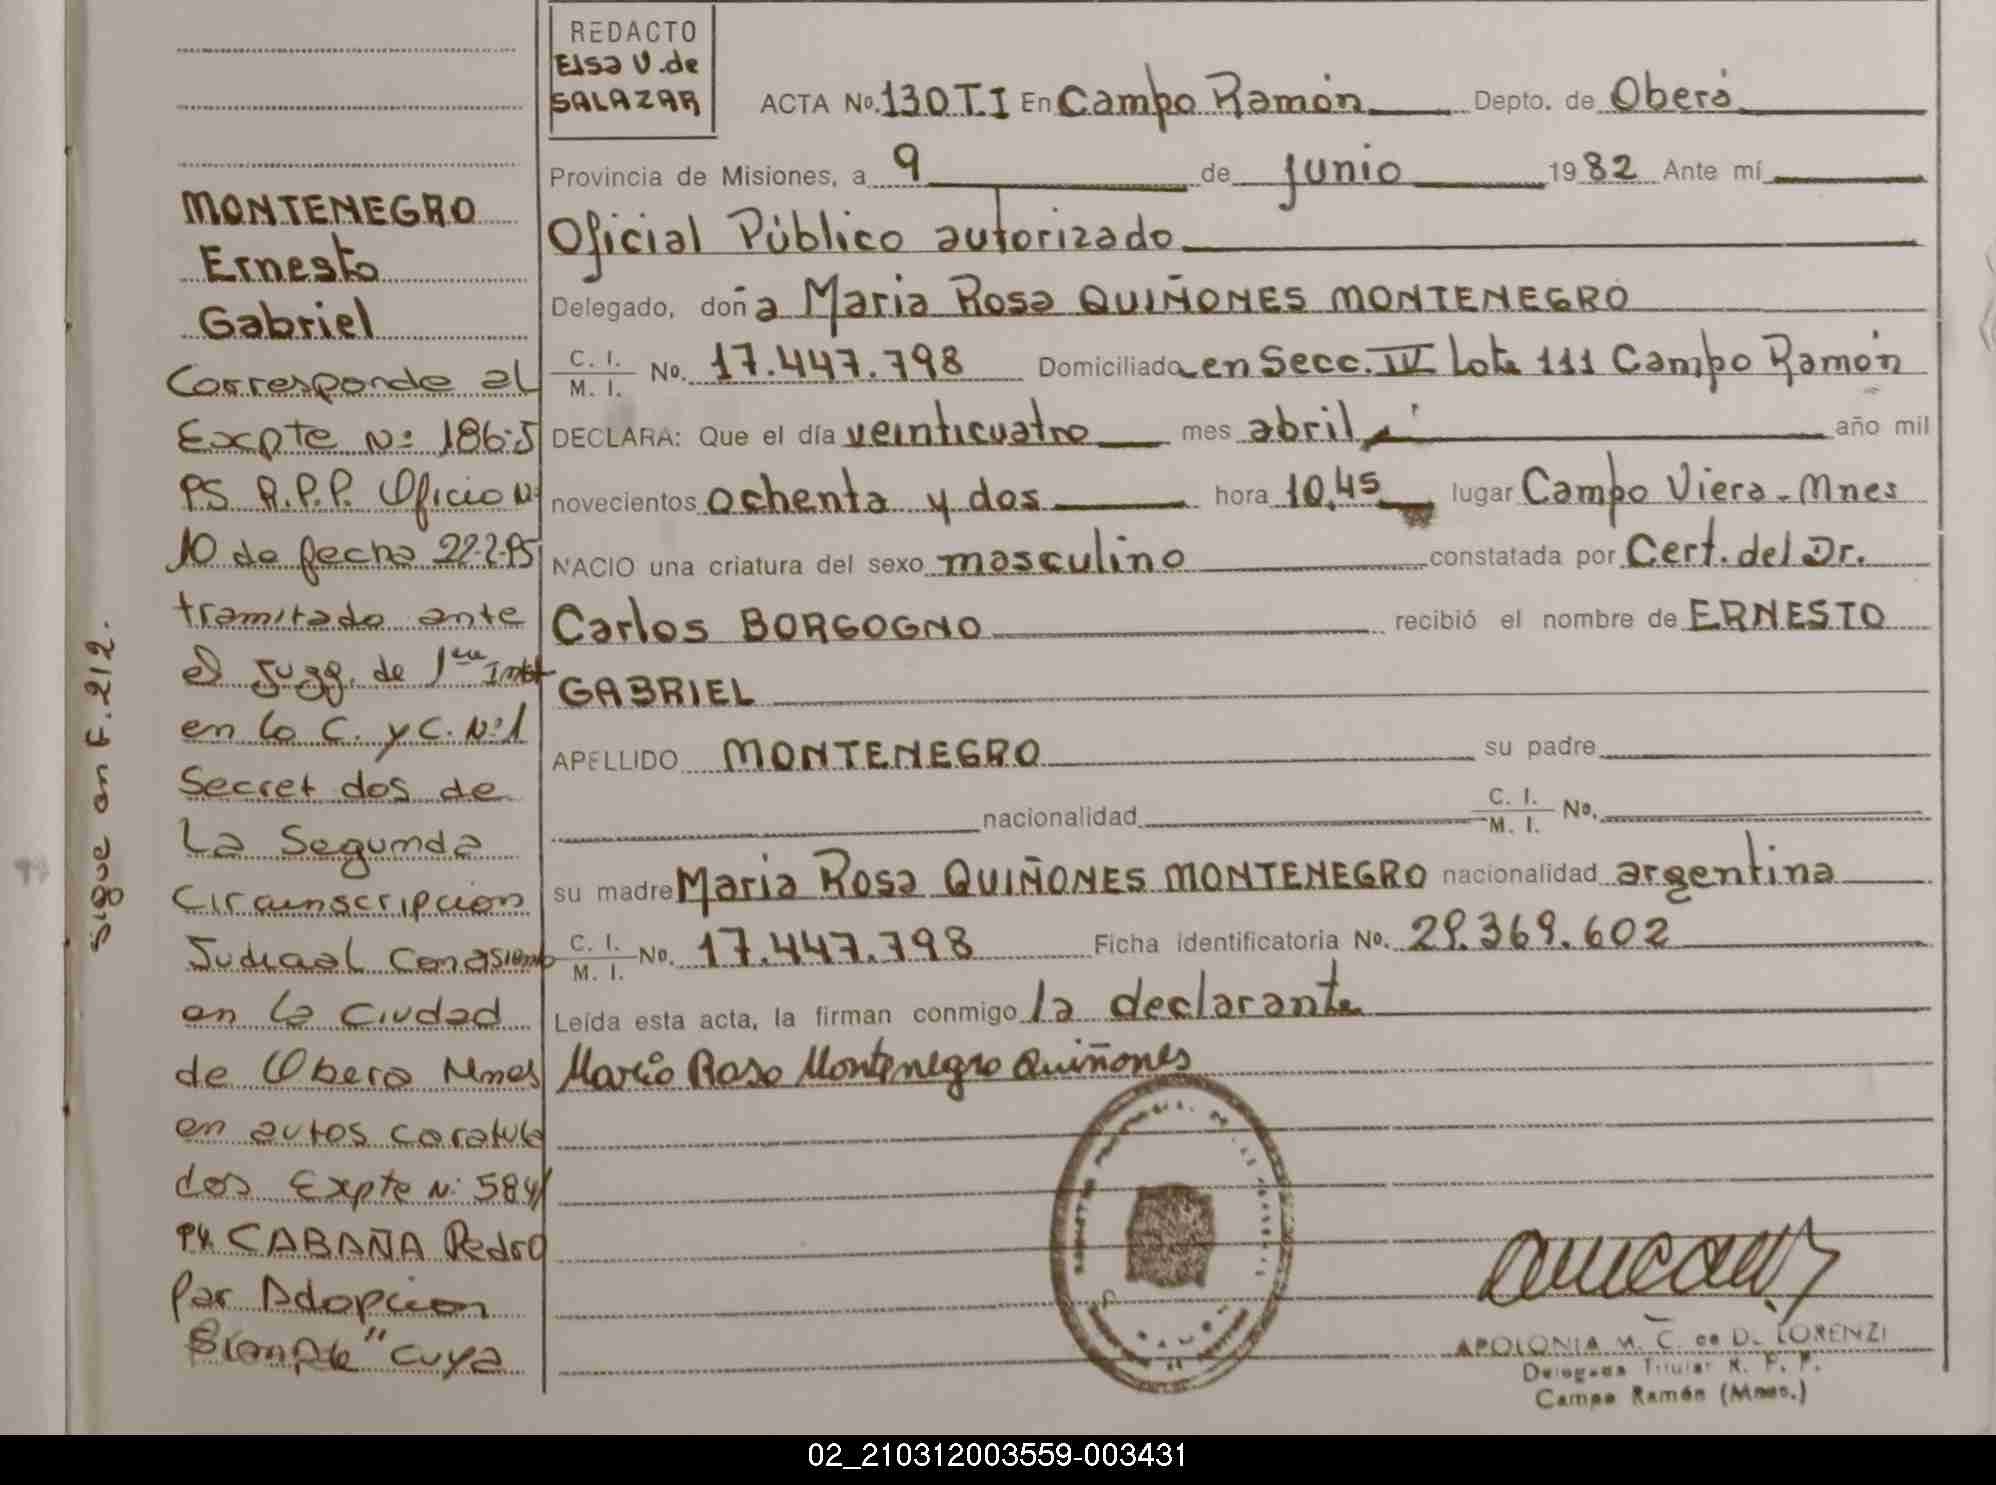 REDACTO
Elsa V. de
SALAZAR
ACTA No. 130 T.I En Campo Ramón Depto. de Oberá
Provincia de Misiones, a 9 de junio 1982 Ante mí
Oficial Público autorizado
Delegado, doña Maria Rosa QUIÑONES MONTENEGRO
C. I. / M. I. No. 17.447.798 Domiciliada en Secc. IV Lote 111 Campo Ramón
DECLARA: Que el día veinticuatro mes abril año mil
novecientos ochenta y dos hora 10,45 lugar Campo Viera - Mnes
NACIO una criatura del sexo masculino constatada por Cert. del Dr.
Carlos BORGOGNO recibió el nombre de ERNESTO
GABRIEL
APELLIDO MONTENEGRO su padre
nacionalidad C. I. / M. I. No.
su madre Maria Rosa QUIÑONES MONTENEGRO nacionalidad argentina
C. I. / M. I. No. 17.447.798 Ficha identificatoria No. 29.369.602
Leída esta acta, la firman conmigo la declarante
Maria Rosa Montenegro Quiñones
APOLONIA M. C. de D. LORENZI
Delegada Titular R. P. P.
Campo Ramón (Mnes.)
MONTENEGRO
Ernesto
Gabriel
Corresponde al
Expte Nº 186-J
95 R.P.P. Oficio Nº
10 de fecha 22-2-95
tramitado ante
el Juzg. de 1era Inst
en lo C. y C. Nº 1
Secret dos de
La Segunda
Circunscripcion
Judicial con asiento
en la Ciudad
de Obera Mnes
en autos caratula
dos Expte Nº 584/
94 CABAÑA Pedro
Por Adopcion
Simple" cuya
Sigue en F. 212.
02_210312003559-003431